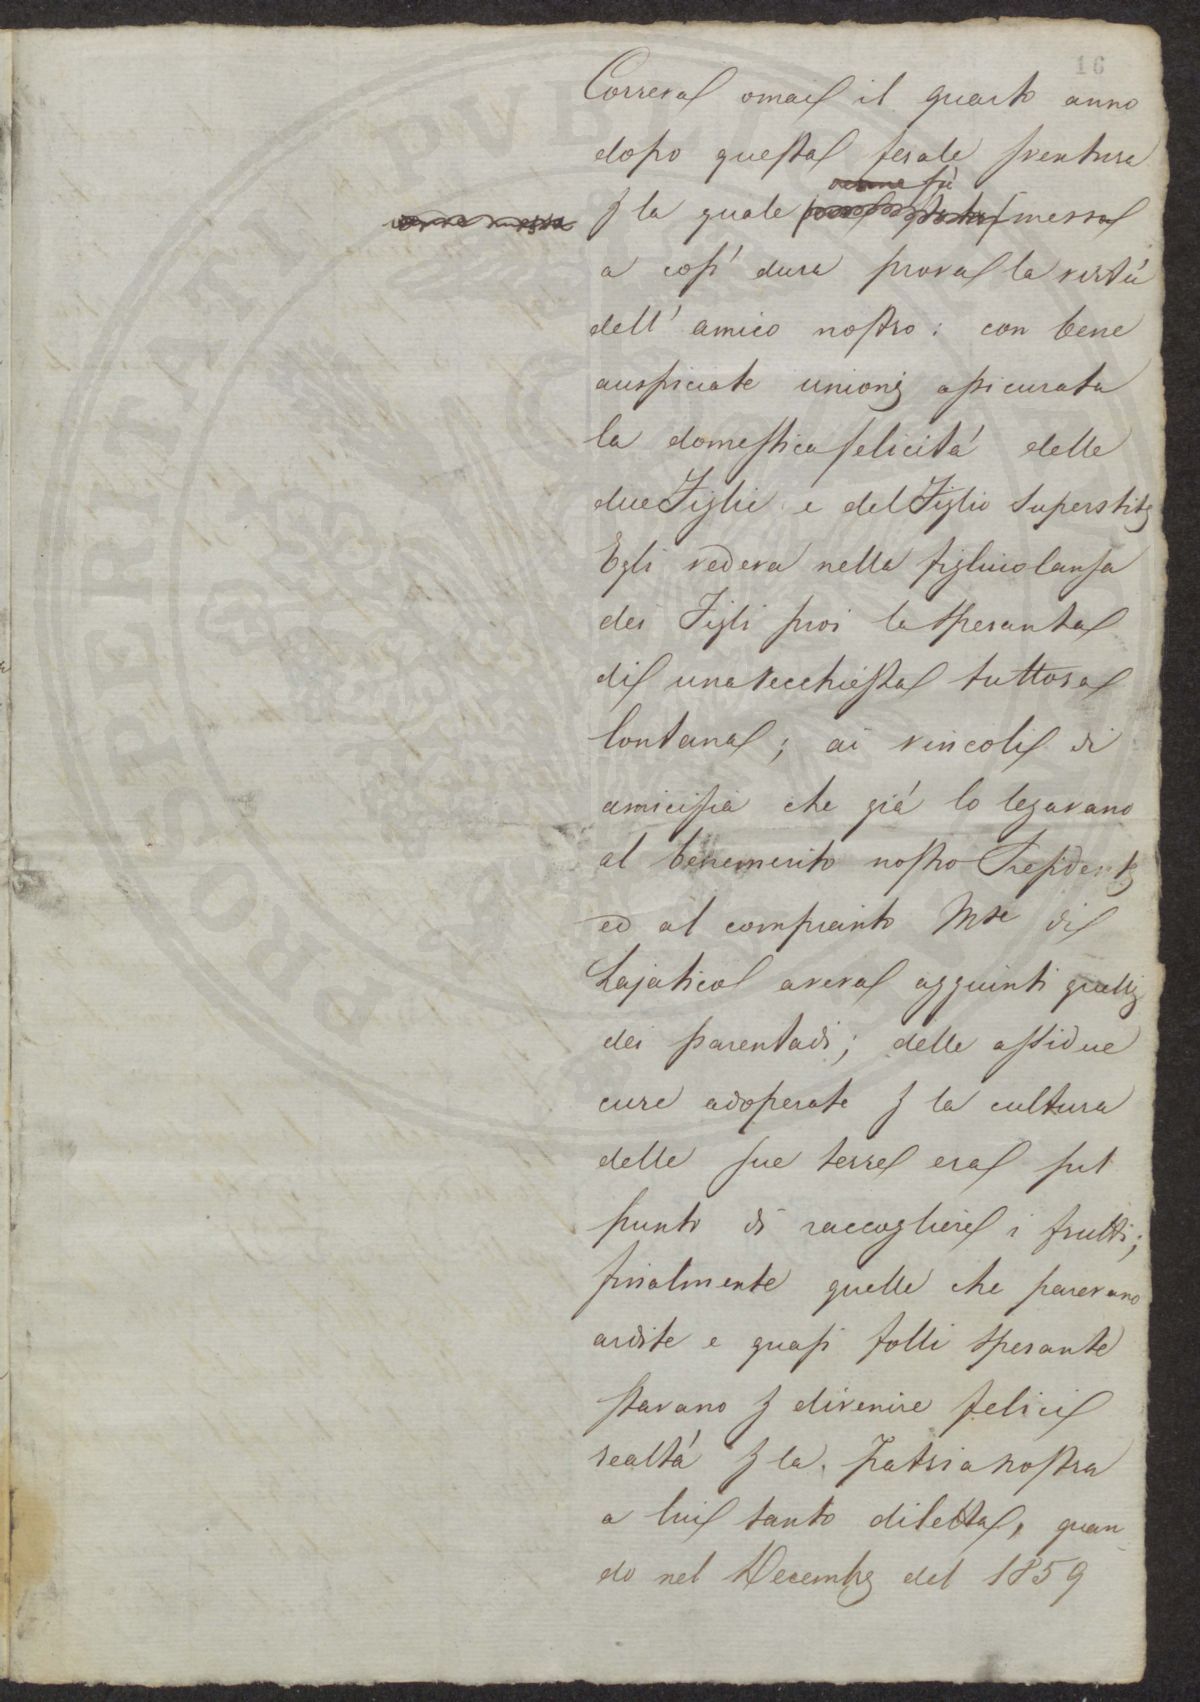 16
Correva omai il quarto anno
dopo questa ferale sventura
venne fù
venne messa
p la quale messa
a così dura prova la virtù
dell' amico nostro: con bene
auspiciate unioni assicurata
la domestica felicità delle
due Figlie e del Figlio superstite
Egli vedeva nella figliuolanza
dei Figli suoi la speranza
di una vecchiezza tuttora
lontana; ai vincoli di
amicizia che già lo legavano
al benemerito nostro Presidente
ed al compianto Mse di
Lajatico aveva aggiunti quelli
dei parentadi; delle assidue
cure adoperate p la cultura
delle sue terre era sul
punto di raccogliere i frutti;
finalmente quelle che parevano
ardite e quasi folli speranze
stavano p divenire felici
realtà p la patria nostra
a lui tanto diletta, quan-
do nel Decembre del 1859